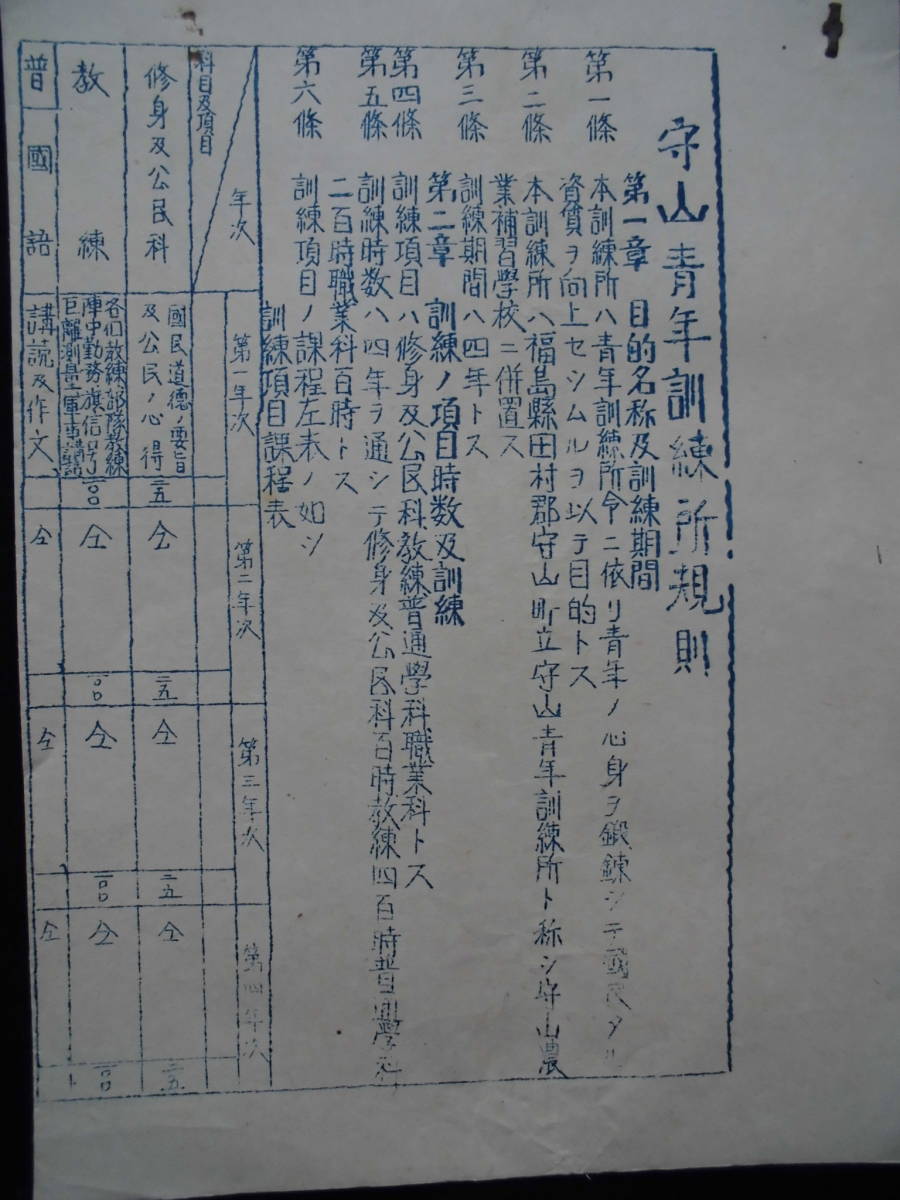 守山青年訓練所規則
第一章　目的名称及訓練期間
第一條　本訓練所ハ青年訓練所令ニ依リ青年ノ心身ヲ鍛錬シテ國民タル
資質ヲ向上セシムルヲ以テ目的トス
第二條　本訓練所ハ福島縣田村郡守山町立守山青年訓練所ト称シ守山農
業補習学校ニ併置ス
第三條　訓練期間ハ四年トス
第二章　訓練ノ項目時数及訓練
第四條　訓練項目ハ修身及公民科教練普通學科職業科トス
第五條　訓練時数ハ四年ヲ通シテ修身及公民科百時教練四百時普通學科
二百時職業科百時トス
第六條　訓練項目ノ課程左表ノ如シ
訓練項目課程表
科目及項目　年次　第一年次　第二年次　第三年次　第四年次
修身及公民科　國民道徳ノ要旨
及公民ノ心得　二五　仝　二五　仝　二五　仝　二五
教練　各個教練部隊教練
陣中勤務旗信号
距離測量軍事講話　一〇〇　仝　一〇〇　仝　一〇〇　仝　一〇〇
普　國語　講読及作文　仝　仝　仝